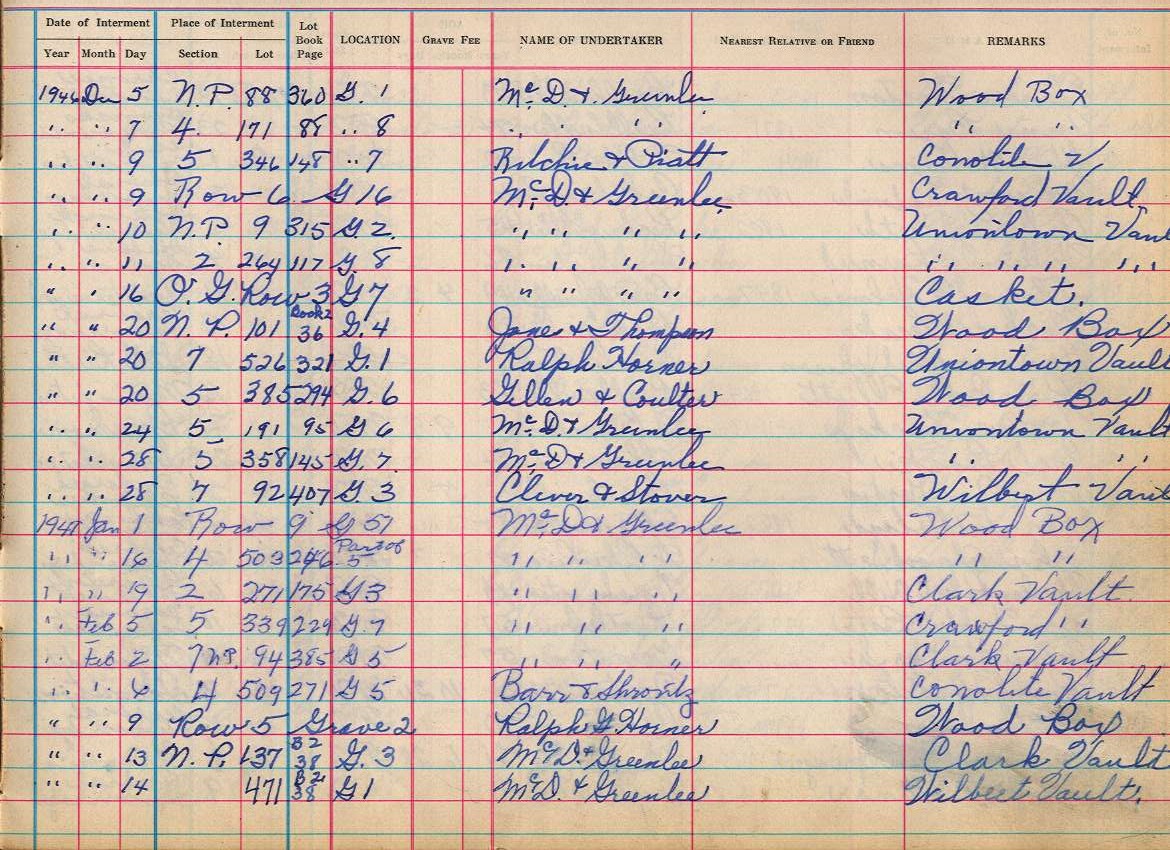 Date of Interment Place of Interment Lot Book Page LOCATION GRAVE FEE NAME OF UNDERTAKER NEAREST RELATIVE OR FRIEND REMARKS
Year Month Day Section Lot
1946 Dec 5 N.P. 88 360 G. 1 Mc.D. & Greenlee Wood Box
" " 7 4. 171 88 " 8 " " " " "
" " 9 5 346 148 " 7 Ritchie & Piatt Conolite V.
" " 9 Row 6 G 16 Mc.D & Greenlee Crawford Vault.
" " 10 N.P. 9 315 G. 2. " " " " Uniontown Vault
" " 11 2 264 117 G. 8 " " " " " " " " "
" " 16 O. G. Row 3 G 7 " " " " Casket.
" " 20 N. P. 101 Book 2 36 G. 4 & Thompson Wood Box
" " 20 7 526 321 G. 1 Ralph Horner Uniontown Vault
" " 20 5 385 294 G. 6 & Coulter Wood Box
" " 24 5 191 95 G 6 Mc.D & Greenlee Uniontown Vault
" " 28 5 358 145 G. 7. Mc.D & Greenlee " "
" " 28 7 92 407 G. 3 Clever & Stover Wilbert Vault
1947 Jan 1 Row 9 G 57 Mc.D & Greenlee Wood Box
" " 16 4 503 246 Part of 5 " " " " "
" " 19 2 271 175 G 3 " " " Clark Vault.
" Feb 5 5 339 229 G. 7 " " " Crawford "
" Feb 2 7 N.P. 94 385 G 5 " " " Clark Vault
" " 6 4 509 271 G 5 Barr & Shrontz Conolite Vault
" " 9 Row 5 Grave 2 Ralph G. Horner Wood Box
" " 13 N. P. 137 B 2 38 G. 3 Mc.D. & Greenlee Clark Vault
" " 14 471 B 2 38 G 1 Mc.D. & Greenlee Wilbert Vault.